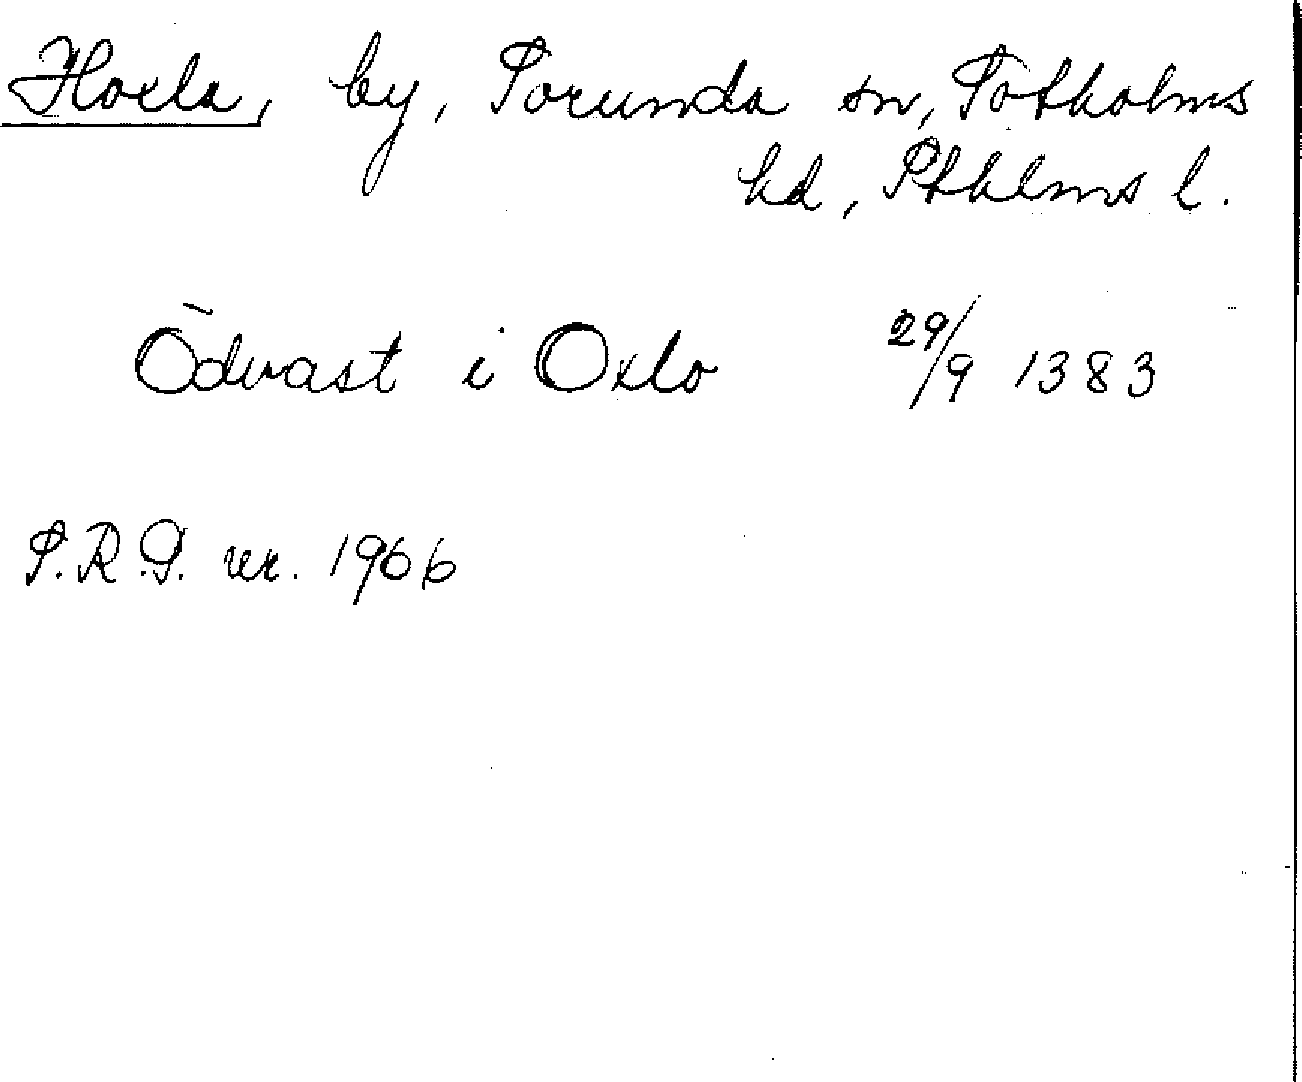 Hoxla, by, Sorunda sn, Sotholms
hd, Sthlms l.
Ödvast i Oxlo 29/9 1383
S.R.P. nr. 1966